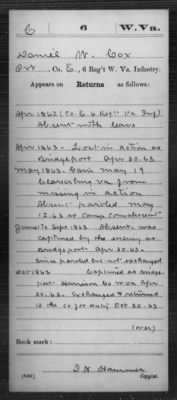 C | 6 | W.Va.
Daniel W. Cox
Pvt, Co. E, 6 Reg't W. Va. Infantry.
Appears on Returns as follows:
Apr 1862 (Co. E, 6 Regt Va Inf)
Absent with leave
Apr 1863. Lost in action at
Bridgeport Apr 30.63
May 1863. Gain May 19
Clarksburg Va from
missing in action
Absent paroled May
12.63 at camp convalescent
June to Sept 1863 Absent. was
captured by the enemy at
Bridgeport Apr 30.63
Since paroled but not exchanged
Oct 1863 Captured at Bridge-
port Harrison Co W.Va Apr
30.63. Exchanged & returned
to the Co for duty Oct 30.63
(over)
Book mark:
(686)
Copyist.